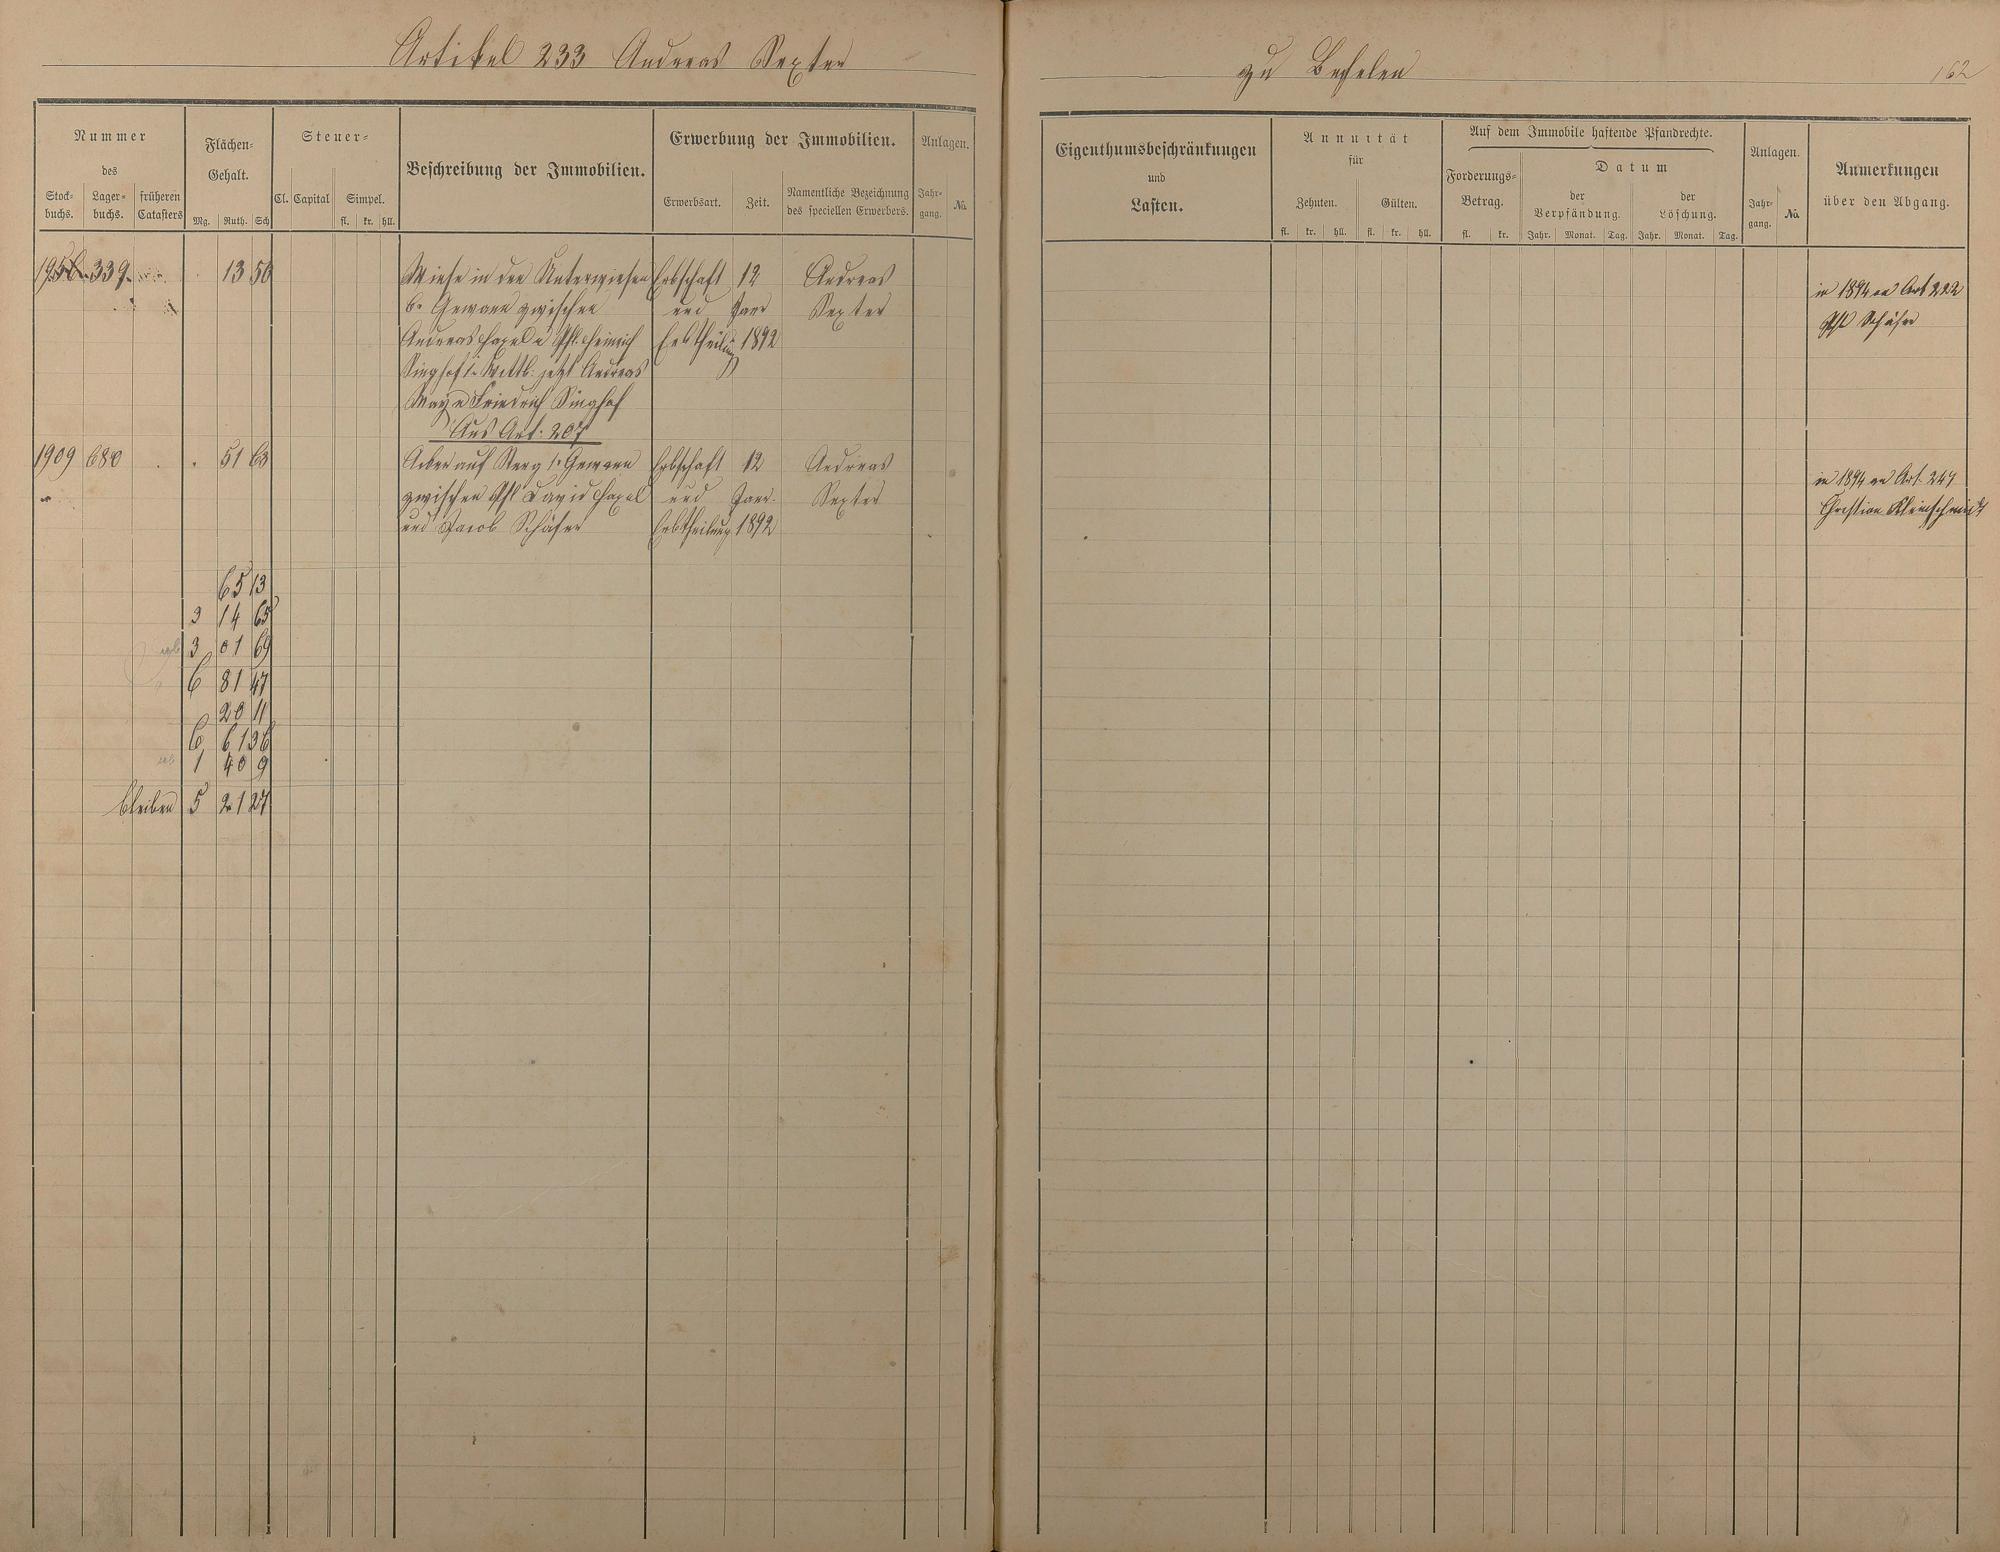 Artikel 233 Andreas Sexter
zu Becheln
162
Nummer
des
Stock-
buchs.
Lager-
buchs.
früheren
Catasters
Flächen-
Gehalt.
Mg. Ruth. Sch
Steuer-
Cl. Capital Simpel.
fl. kr. hll.
Beschreibung der Immobilien.
Erwerbung der Immobilien.
Erwerbsart. Zeit.
Namentliche Bezeichnung
des speciellen Erwerbers.
Anlagen.
Jahr-
gang.
No.
Eigenthumsbeschränkungen
und
Lasten.
Annuität
für
Zehnten. Gülten.
fl. kr. hll. fl. kr. hll.
Auf dem Immobile haftende Pfandrechte.
Forderungs-
Betrag.
fl. kr.
Datum
der
Verpfändung.
der
Löschung.
Jahr. Monat. Tag. Jahr. Monat. Tag.
Anlagen.
Jahr-
gang.
No.
Anmerkungen
über den Abgang.
339. 13 50 Wiese in den Unterwiesen Erbschaft 12 Andreas
6r Gewann zwischen und Janr Sexter
Andreas Erbtheilung 1892
jetzt Andreas
May u Friedrich Singhof
Aus Art: 207
in 1894 an Art 222
Phl Schäfer
1909 680 . . 51 63 Acker auf 1r Gewann Erbschaft 12 Andreas
zwischen Phl David und Janr. Sexter
und Jacob Schäfer Erbtheilung 1892
in 1894 an Art. 247
Christian Kleinschmidt
65 13
3 14 65
3 01 69
6 81 47
20 11
6 61 36
1 40 9
bleiben 5 21 27